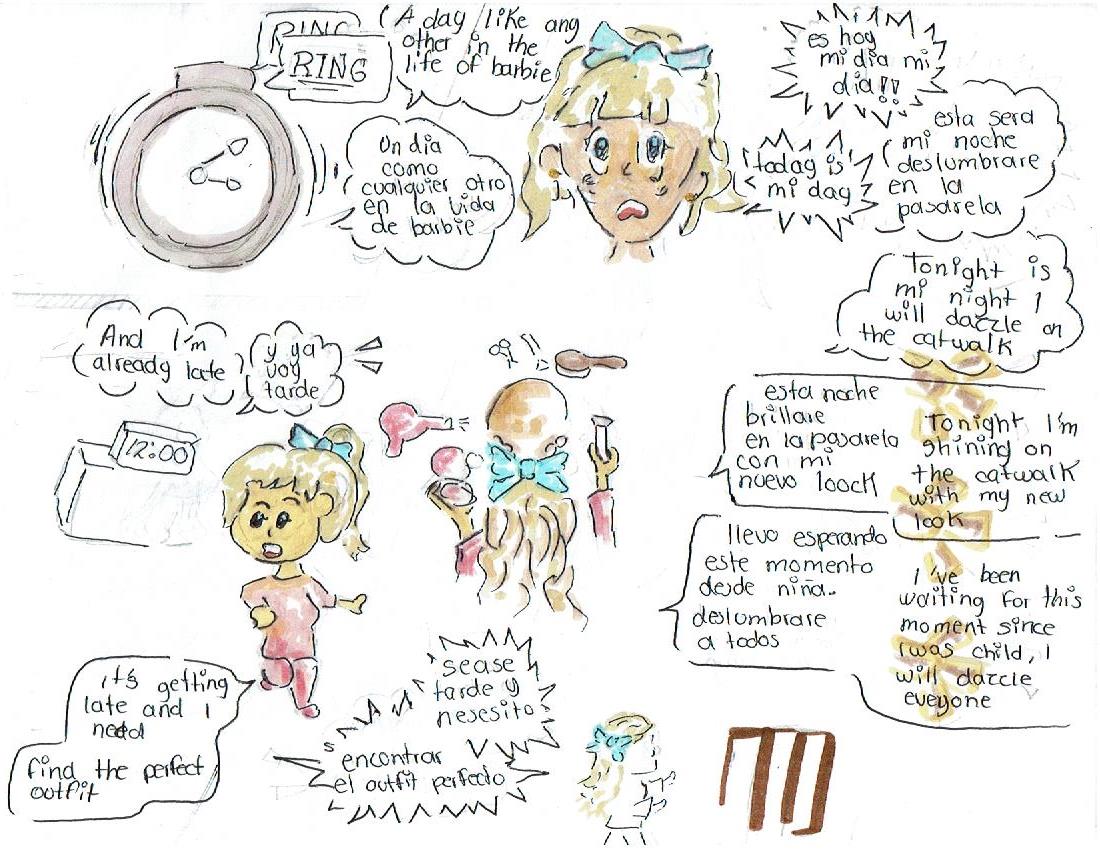 RING
RING
A day like any
other in the
life of barbie
Un dia
como
cualquier otro
en la vida
de barbie
es hoy
mi dia mi
dia!!
today is
mi day
esta sera
mi noche
deslumbrare
en la
pasarela
Tonight is
mi night I
will dazzle on
the catwalk
And I'm
already late
y ya
voy
tarde
12:00
esta noche
brillare
en la pasarela
con mi
nuevo loock
Tonight I'm
shining on
the catwalk
with my new
look
llevo esperando
este momento
desde niña.
deslumbrare
a todos
I've been
waiting for this
moment since
I was child, I
will dazzle
eveyone
it's getting
late and I
need
find the perfect
outfit
sease
tarde y
nesesito
encontrar
el outfit perfecto